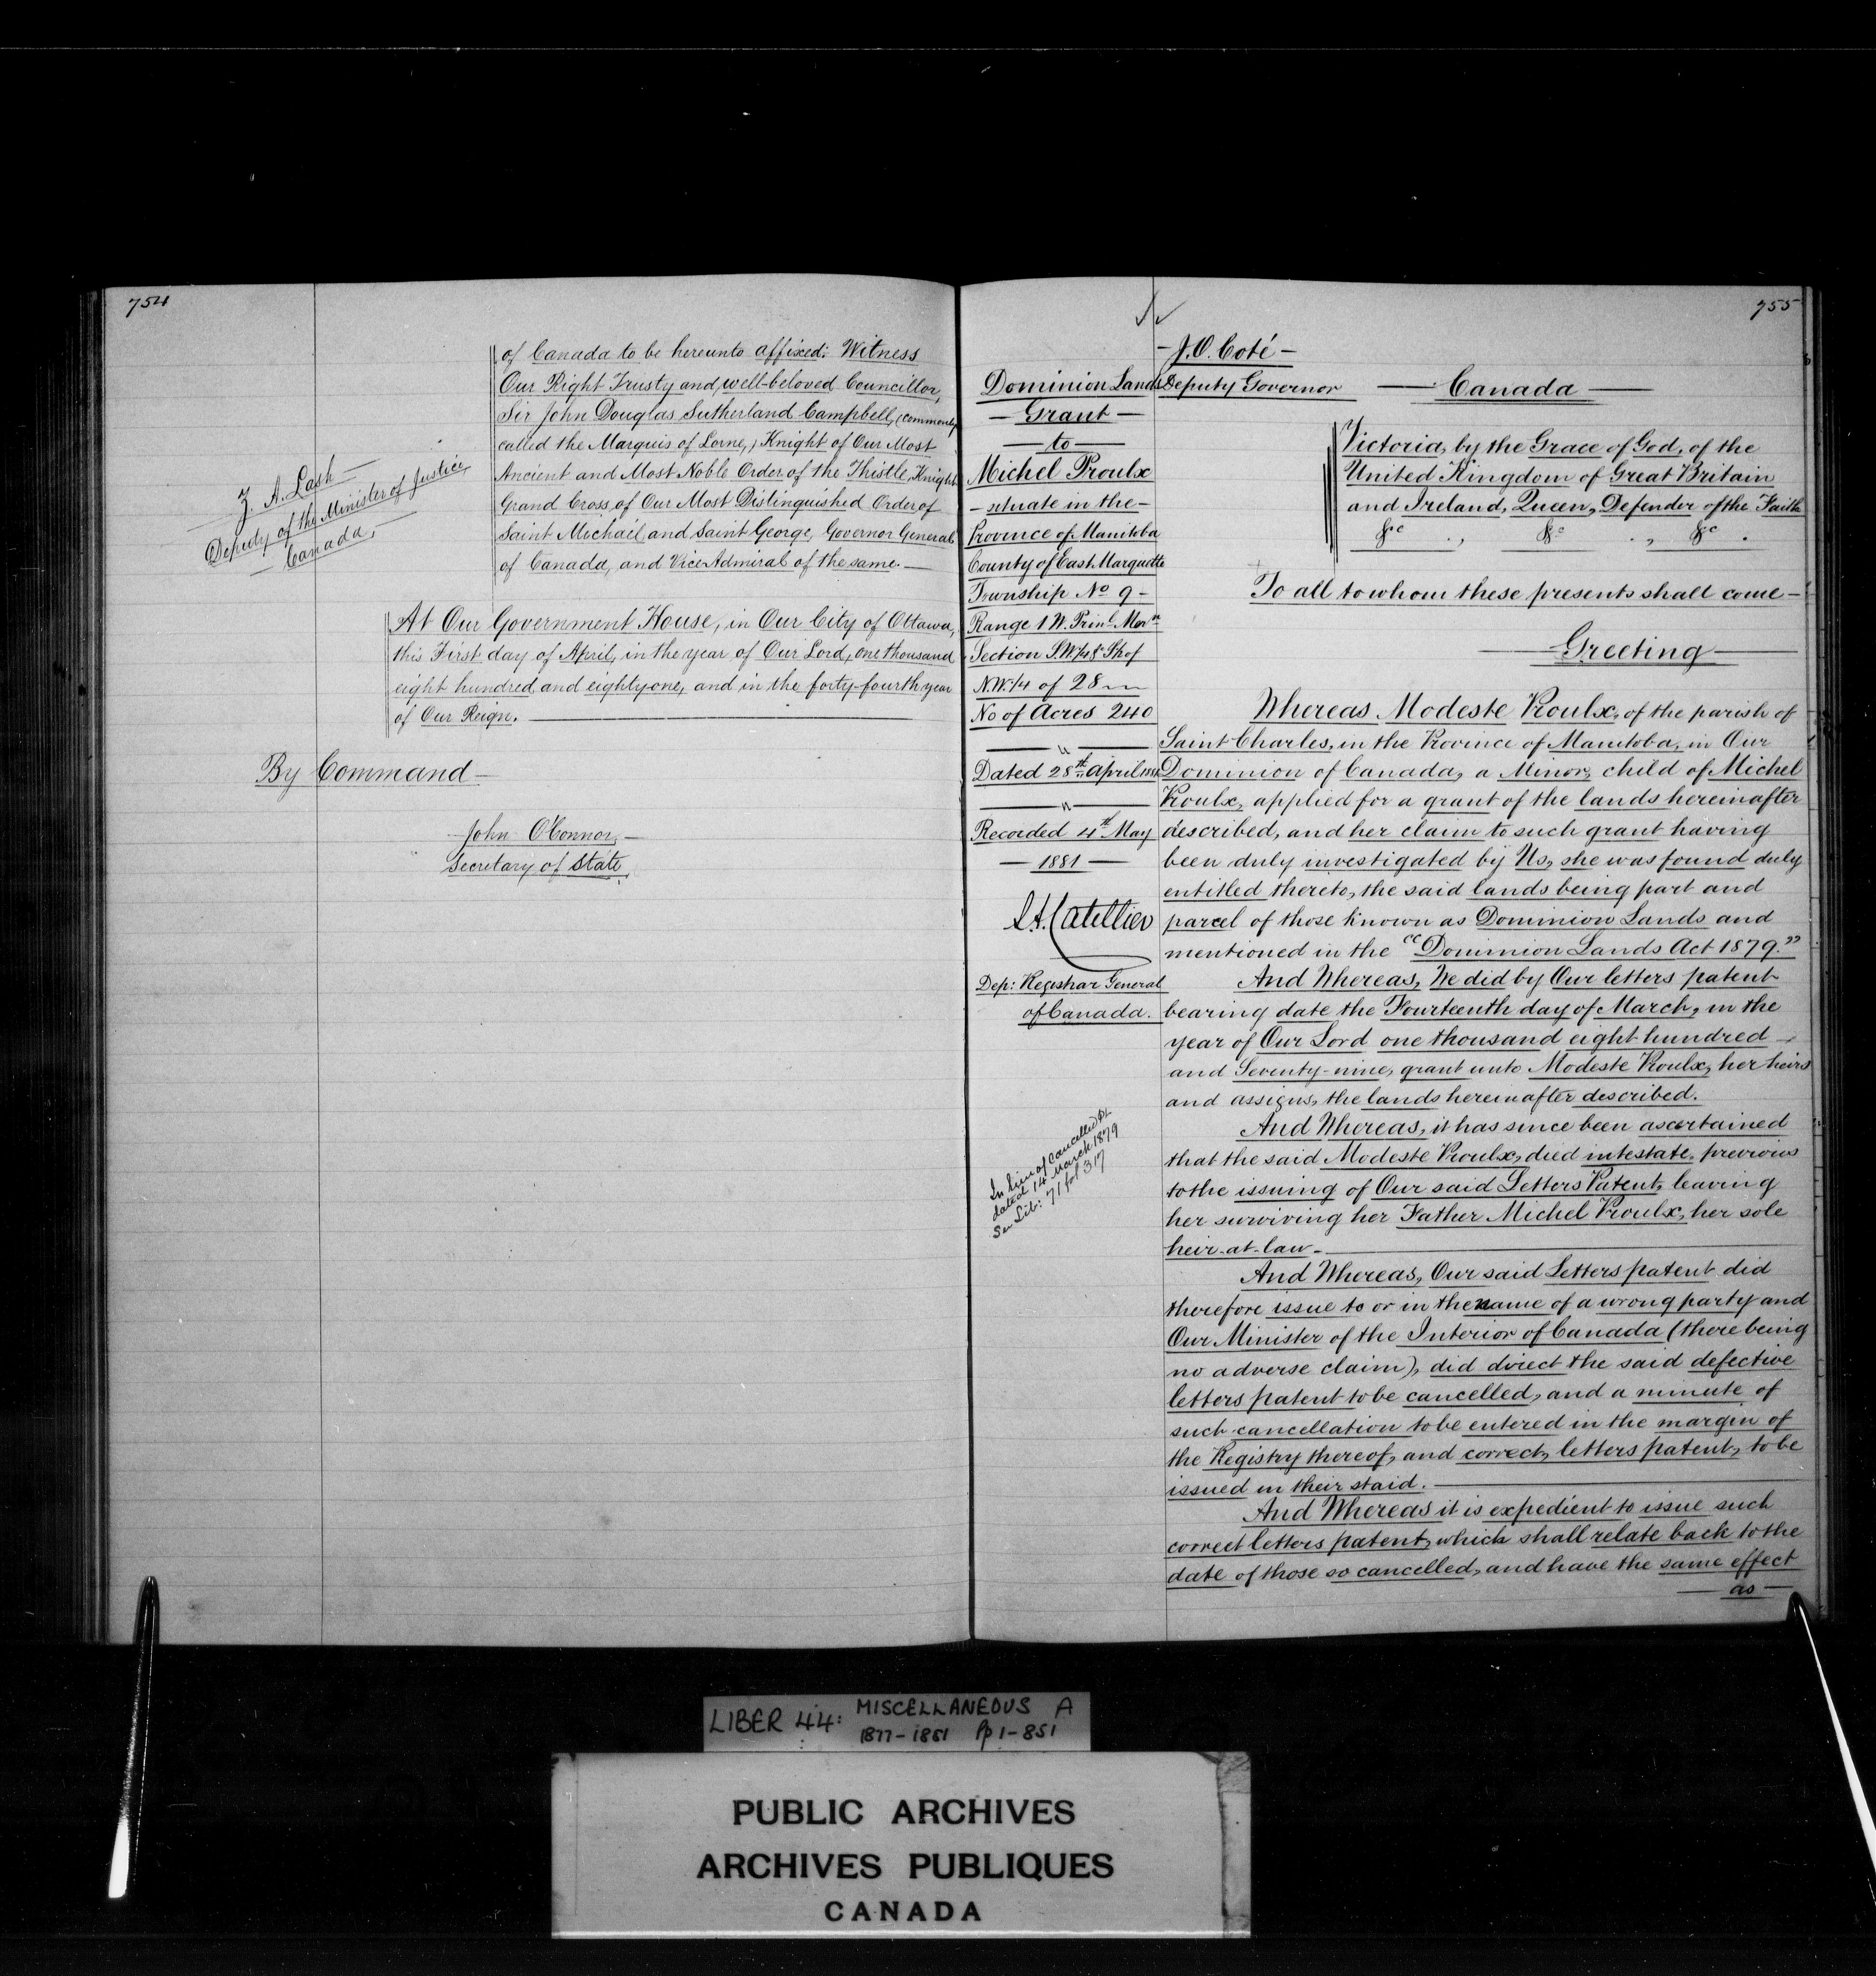 754
of Canada to be hereunto affixed: Witness
Our Right Trusty and well-beloved Councillor,
Sir John Douglas Sutherland Campbell, (commonly
called the Marquis of Lorne,) Knight of Our Most
Ancient and Most Noble Order of the Thistle, Knight
Grand Cross of Our Most Distinguished Order of
Saint Michael and Saint George, Governor General
of Canada, and Vice Admiral of the same.
Z. A. Lash
Deputy of the Minister of Justice,
Canada,
At Our Government House, in Our City of Ottawa,
this First day of April, in the year of Our Lord, one thousand
eight hundred and eighty-one, and in the forty-fourth year
of Our Reign.
By Command
John O'Connor,
Secretary of State,
755
Dominion Lands
Grant
to
Michel Proulx
situate in the
Province of Manitoba
County of East Marquette
Township No 9
Range 1 W. Prinl. Mern
Section S.W.1/4 & S½ of
N.W.1/4 of 28
No of Acres 240
"
Dated 28th April 1881
"
Recorded 4th May
1881
L.A. Catellier
Dep: Registrar General
of Canada.
In lieu of cancelled P.L.
dated 14 March 1879
See Lib: 71 fol 317
J.O. Coté
Deputy Governor
Canada
Victoria, by the Grace of God, of the
United Kingdom of Great Britain
and Ireland, Queen, Defender of the Faith
&c ., &c ., &c .
To all to whom these presents shall come
Greeting
Whereas Modeste Proulx, of the parish of
Saint Charles, in the Province of Manitoba, in Our
Dominion of Canada, a Minor, child of Michel
Proulx, applied for a grant of the lands hereinafter
described, and her claim to such grant having
been duly investigated by Us, she was found duly
entitled thereto, the said lands being part and
parcel of those known as Dominion Lands and
mentioned in the "Dominion Lands Act 1879."
And Whereas, We did by Our letters patent
bearing date the Fourteenth day of March, in the
year of Our Lord one thousand eight hundred
and Seventy-nine, grant unto Modeste Proulx, her heirs
and assigns, the lands hereinafter described.
And Whereas, it has since been ascertained
that the said Modeste Proulx, died intestate, previous
to the issuing of Our said Letters Patent, leaving
her surviving her Father Michel Proulx, her sole
heir-at-law.
And Whereas, Our said Letters patent did
therefore issue to or in the name of a wrong party and
Our Minister of the Interior of Canada (there being
no adverse claim), did direct the said defective
letters patent to be cancelled, and a minute of
such cancellation to be entered in the margin of
the Registry thereof, and correct, letters patent, to be
issued in their staid.
And Whereas it is expedient to issue such
correct letters patent, which shall relate back to the
date of those so cancelled, and have the same effect
as
LIBER 44: MISCELLANEOUS A
1877-1881 Pp 1-851
PUBLIC ARCHIVES
ARCHIVES PUBLIQUES
CANADA